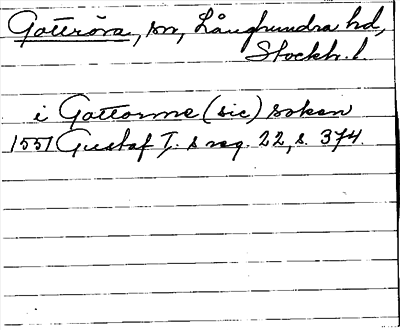 Gottröra, sn, Långhundra hd,
Stockh. l.
i Gottorme (sic) soken
1551 Gustaf I. s reg. 22, s. 374.